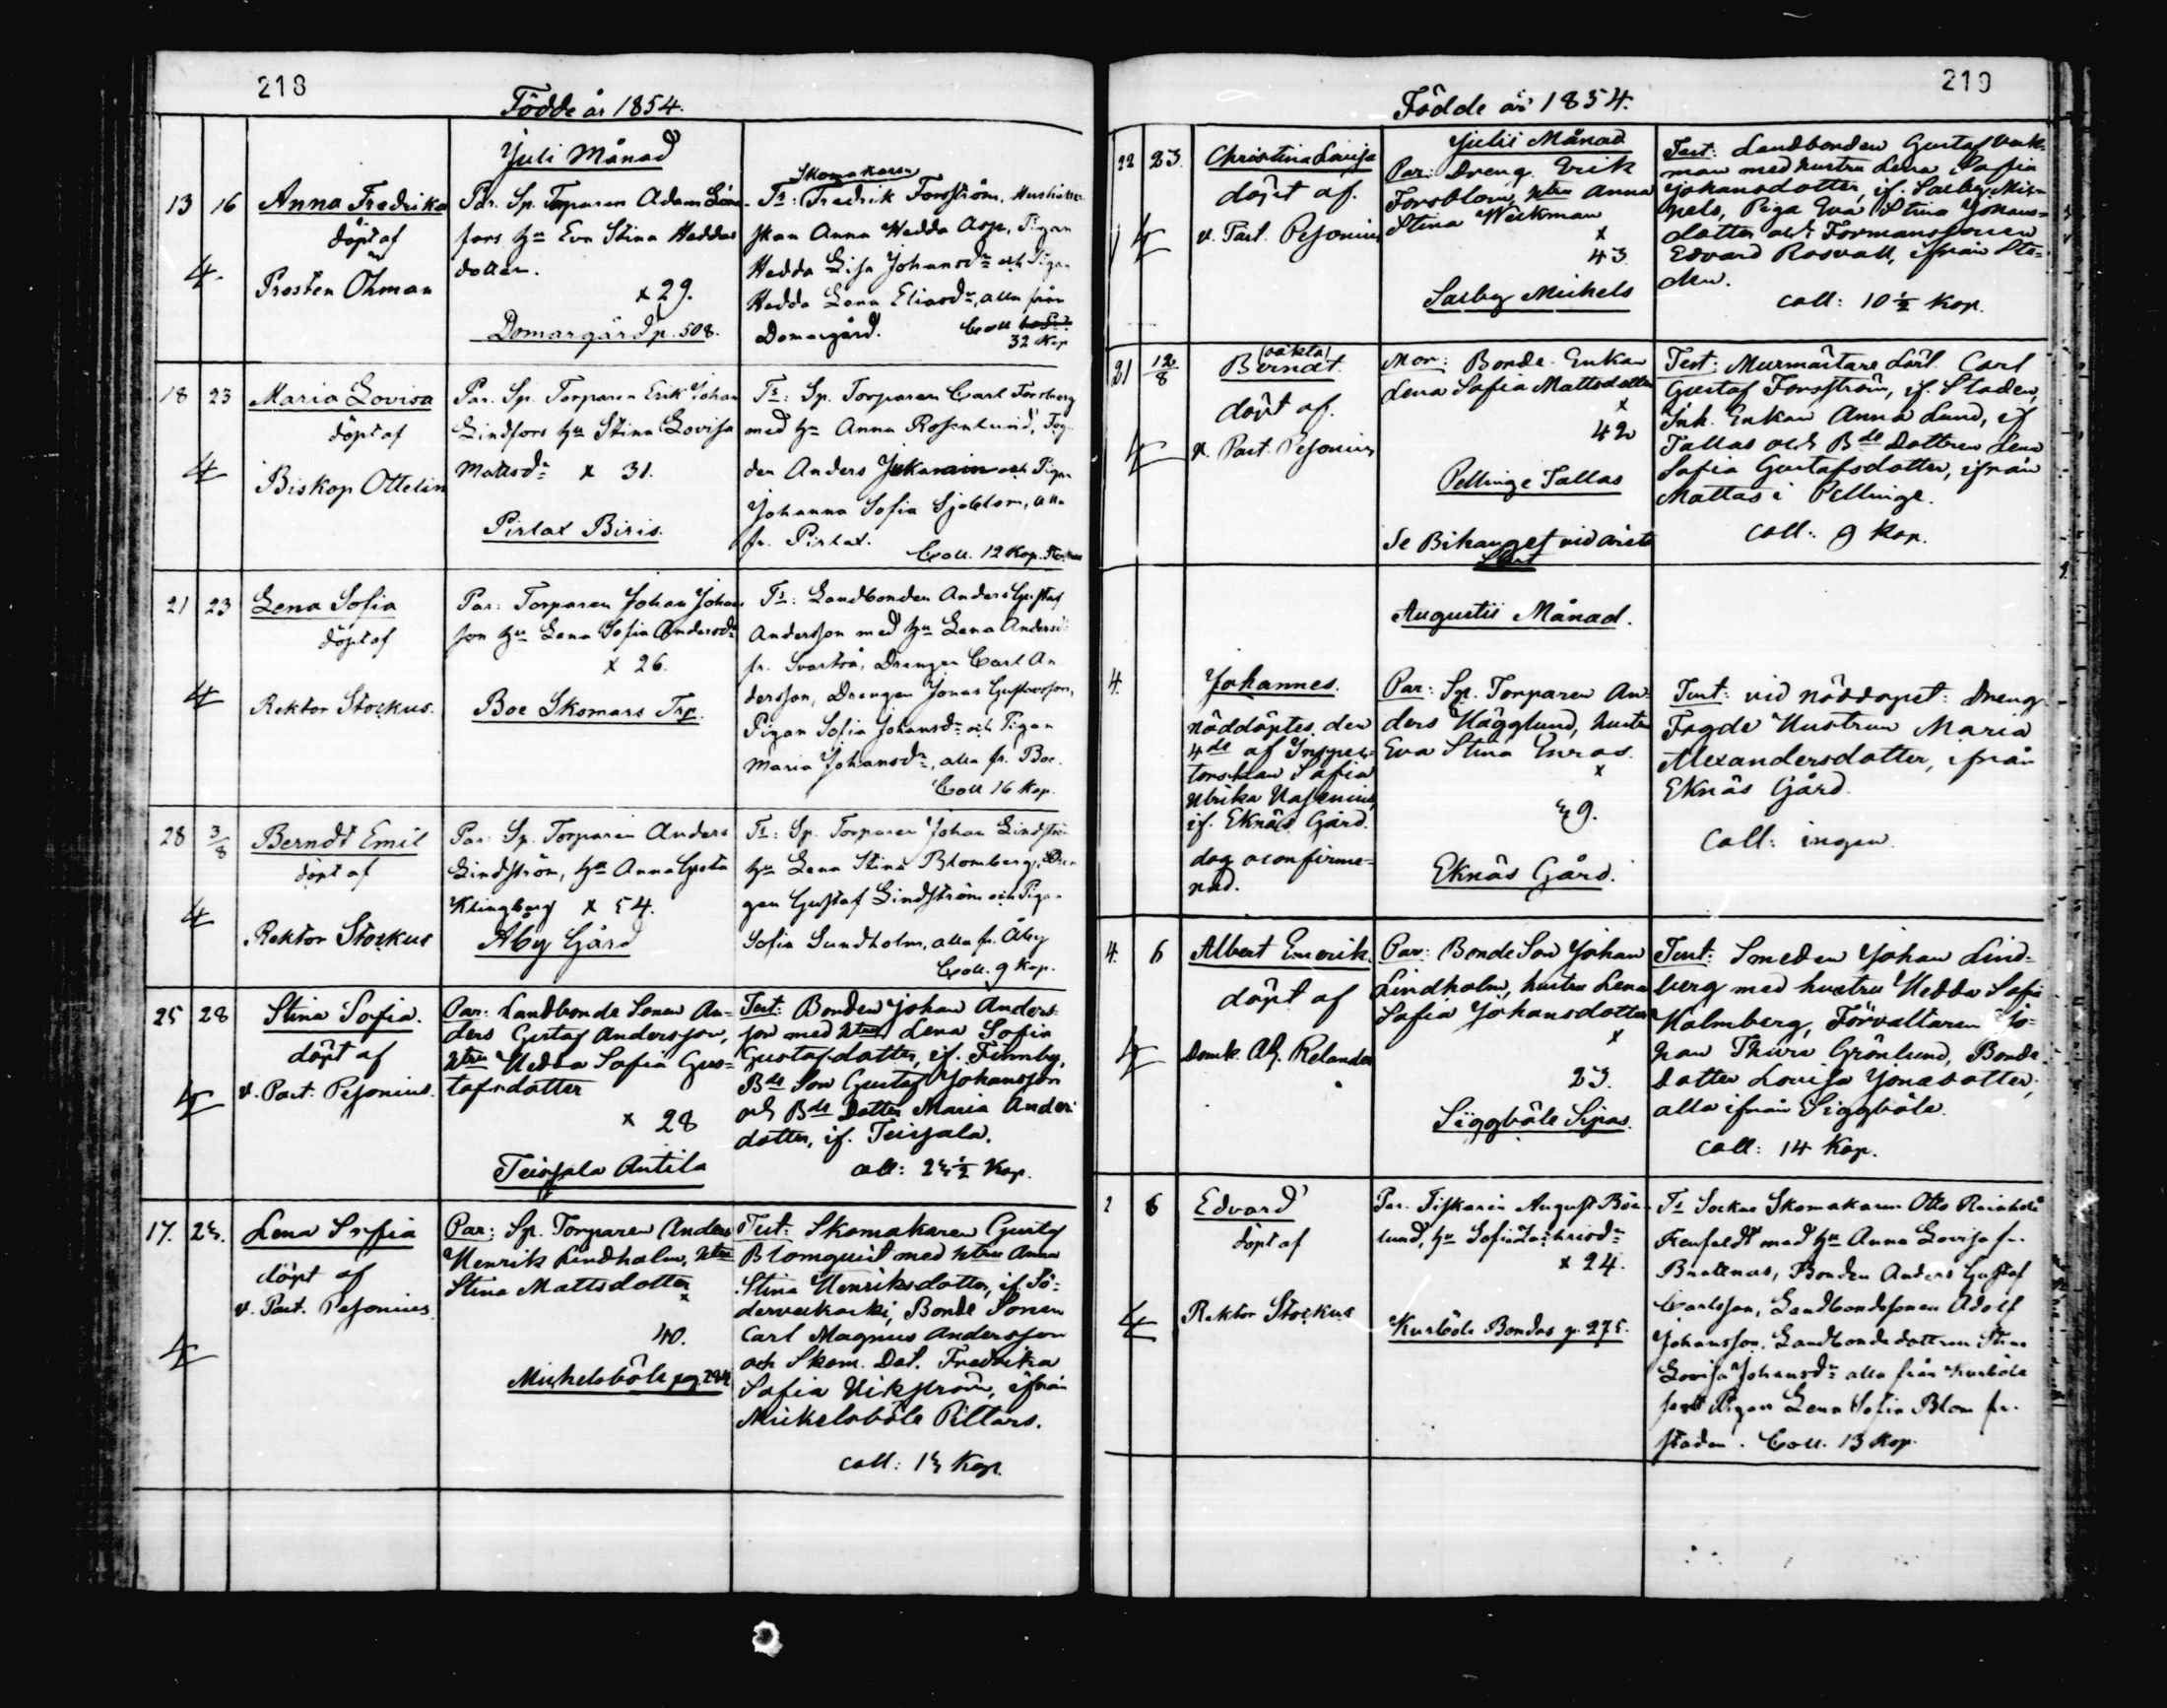 218
Födde år 1854.
Juli Månad
13 16 Anna Fredrika
döpt af
Prosten Öhman
Par. Sp. Torparen Adam
fors hu Eva Stina Heddas
dotter.
x 29.
Domargård p. 508.
Skomakaren
Ts: Fredrik Forsström, Hushåller
skan Anna Hedda Asp, Pigan
Hedda Lisa Johansdr och Pigan
Hedda Lena Eliasdr, alla från
Domargård. Coll
32 Kop
18 23 Maria Lovisa
döpt af
Biskop Ottelin
Par. Sp. Torparen Erik Johan
Lindfors hu Stina Lovisa
Mattsdr x 31.
Pirlax Biris.
Ts: Sp. Torparen Carl Forsberg
med hu Anna Rosenlund,
den Anders och Pigan
Johanna Sofia Sjöblom, alla
fr. Pirlax.
Coll. 12 Kop.
21 23 Lena Sofia
döpt af
Rektor Stockus.
Par: Torparen Johan Johans
son hu Lena Sofia Andersdr
x 26.
Boe Skomars Trp.
Ts: Landbonden Anders Gustaf
Andersson med hu Lena Andersd
fr. Svartså, Drengen Carl An
dersson, Drengen Jonas Gustavsson,
Pigan Sofia Johansdr och Pigan
Maria Johansdr, alla fr. Boe.
Coll 16 Kop.
28 3/8 Berndt Emil
döpt af
Rektor Stockus
Par: Sp. Torparen Anders
Lindström, hu Anna Greta
Klingberg x 54.
Åby Gård
Ts: Sp. Torparen Johan Lindström
hu Lena Stina Blomberg, Dren
gen Gustaf Lindström och Pigan
Sofia Sundholm, alla fr. Åby
Coll. 9 Kop.
25 28 Stina Sofia.
döpt af
v. Past. Pesonius.
Par: Landbonde Sonen An-
ders Gustaf Andersson,
Hru Hedda Sofia Gus-
tafsdotter
x 28
Teissala Antila
Test: Bonden Johan Anders-
son med Hru Lena Sofia
Gustafsdotter, if. Finnby,
Bde Son Gustaf Johansson
och Bde Dotter Maria Anders
dotter, if. Teissala.
coll: 25 1/2 Kop.
17. 25. Lena Sofia
döpt af
v. Past. Pesonius
Par: Sp. Torparen Anders
Henrik Lindholm, Hru
Stina Mattsdotter
x
40.
Mickelsböle pag 294
Test: Skomakaren Gustaf
Blomquist med Hru Anna
Stina Henriksdotter, if. Sö-
derveckoski, Bonde Sonen
Carl Magnus Andersson
och Skom. Dot. Fredrika
Sofia Vikström, ifrån
Mickelsböle Pittars.
coll: 15 Kop.
219
Födde år 1854.
Julii Månad
22 23. Christina Lovisa
döpt af.
v. Past. Pesonius
Par: Dreng. Erik
Forsblom, Hru Anna
Stina Wickman
x
43
Saxby Michels
Test: Landbonden Gustaf Veck-
man med hustru Lena Sofia
Johansdotter, if. Saxby Mic-
hels, Piga Eva Stina Johans-
dotter och Formanssonen
Edvard Rosvall, ifrån Sta-
den.
coll: 10 1/2 Kop.
21 12/8 (oäkta)
Berndt.
döpt af.
v. Past. Pesonius
Mor: Bonde Enkan
Lena Sofia Mattsdotter
x
42
Pellinge Tallas
Se Bihanget vid årets
Slut
Test: Murmästare Lärl. Carl
Gustaf Forsström, if. Staden,
Inh. Enkan Anna Lund, if
Tallas och Bde Dottren Lena
Sofia Gustafsdotter, ifrån
Mattas i Pellinge.
coll: 9 Kop.
Augustii Månad.
4. Johannes.
nöddöptes den
4de af Inspek-
torskan Sofia
Ulrika
if. Eknäs Gård.
dog oconfirme-
rad.
Par: Sp. Torparen An-
ders Hägglund, hustru
Eva Stina Enros.
x
59.
Eknäs Gård.
Test: vid nöddopet: dreng
Fogde Hustrun Maria
Alexandersdotter, ifrån
Eknäs Gård.
Coll: ingen
4. 6 Albert Emerik.
döpt af
Domk. Adj. Relander
Par: Bonde Son Johan
Lindholm, hustru Lena
Sofia Johansdotter
x
23.
Siggböle Sipas.
Test: Smeden Johan Lind-
berg med hustru Hedda Sofia
Holmberg, Förvaltaren Jo-
han Thure Grönlund, Bonde
dotter Lovisa Jonasdotter,
alla ifrån Siggböle.
coll: 14 Kop.
2 6 Edvard
döpt af
Rektor Stockus
Par. Fiskaren August Böck
lund, hu Sofia Zachrisdr
x 24.
Kurböle Bondas p. 275.
Ts Sockne Skomakaren Otto Reinhold
Frenfeldt med hu Anna Lovisa fr.
Brattnas, Bonden Anders Gustaf
Carlsson, Landbondesonen Adolf
Johansson, Landbondedottren Stina
Lovisa Johansdr alla från Kurböle
samt Pigan Lena Sofia Blom fr.
staden. Coll. 13 Kop.